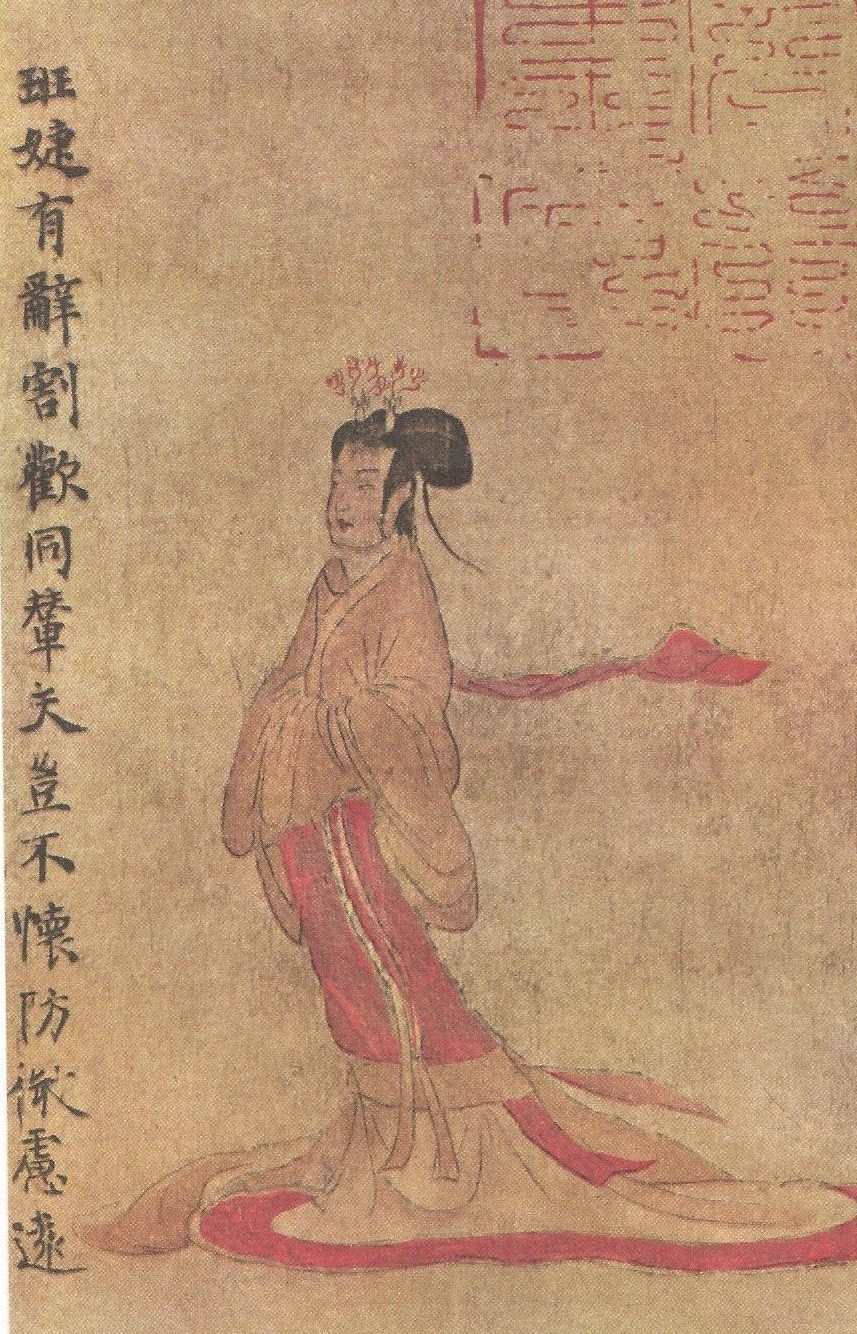 班婕有辭割歡同輦夫豈不懷防微慮遠